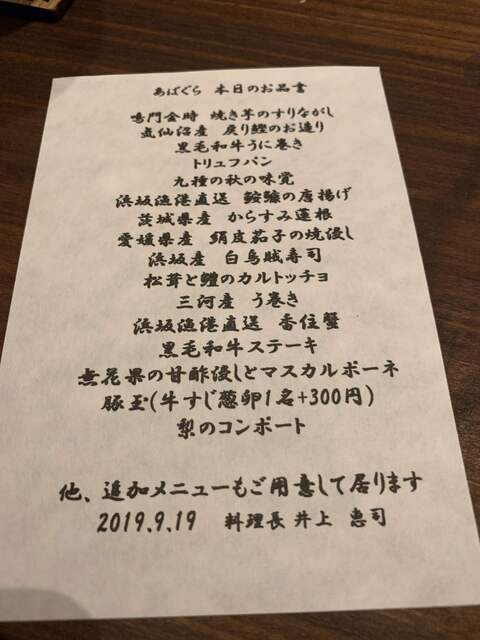 あばぐら 本日のお品書
鳴門金時 焼き芋のすりながし
気仙沼産 戻り鰹のお造り
黒毛和牛うに巻き
トリュフパン
九種の秋の味覚
浜坂漁港直送 鮟鱇の唐揚げ
茨城県産 からすみ蓮根
愛媛県産 絹皮茄子の焼浸し
浜坂産 白烏賊寿司
松茸と鱧のカルトッチョ
三河産 う巻き
浜坂漁港直送 香住蟹
黒毛和牛ステーキ
無花果の甘酢浸しとマスカルポーネ
豚玉(牛すじ葱卵1名+300円)
梨のコンポート
他、追加メニューもご用意して居ります
2019.9.19 料理長 井上 恵司